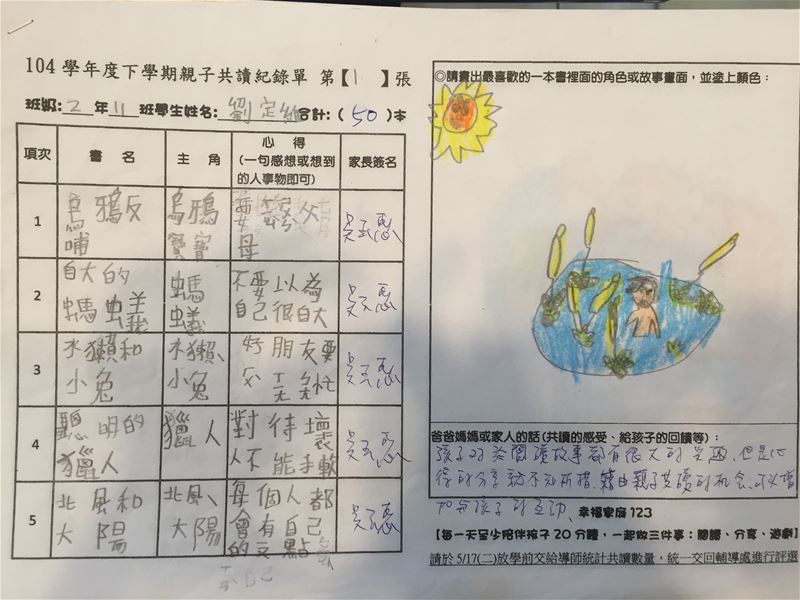 104 學年度下學期親子共讀紀錄單 第【1】張
班級:2年11班學生姓名:劉定 合計:( 50 )本
項次 書 名 主 角 心 得 (一句感想或想到的人事物即可) 家長簽名
1 烏鴉反哺 烏鴉寶寶 父母
2 自大的螞蟻 螞蟻 不要以為自己很自大
3 水獺和小兔 水獺、小兔 好朋友要ㄒㄤ忙
4 聰明的獵人 獵人 對待壞人不能手軟
5 北風和太陽 北風、太陽 每個人都會有自己的 點
◎請畫出最喜歡的一本書裡面的角色或故事畫面，並塗上顏色：
爸爸媽媽或家人的話(共讀的感受、給孩子的回饋等)：
孩子對於閱讀故事都有很大的興趣,但是心
得的分享 不知所措,藉由親子共讀的機會,可以增
加與孩子的互動、
幸福家庭 123
【每一天至少陪伴孩子 20 分鐘，一起做三件事：閱讀、分享、遊戲】
請於 5/17(二)放學前交給導師統計共讀數量，統一交回輔導處進行評選